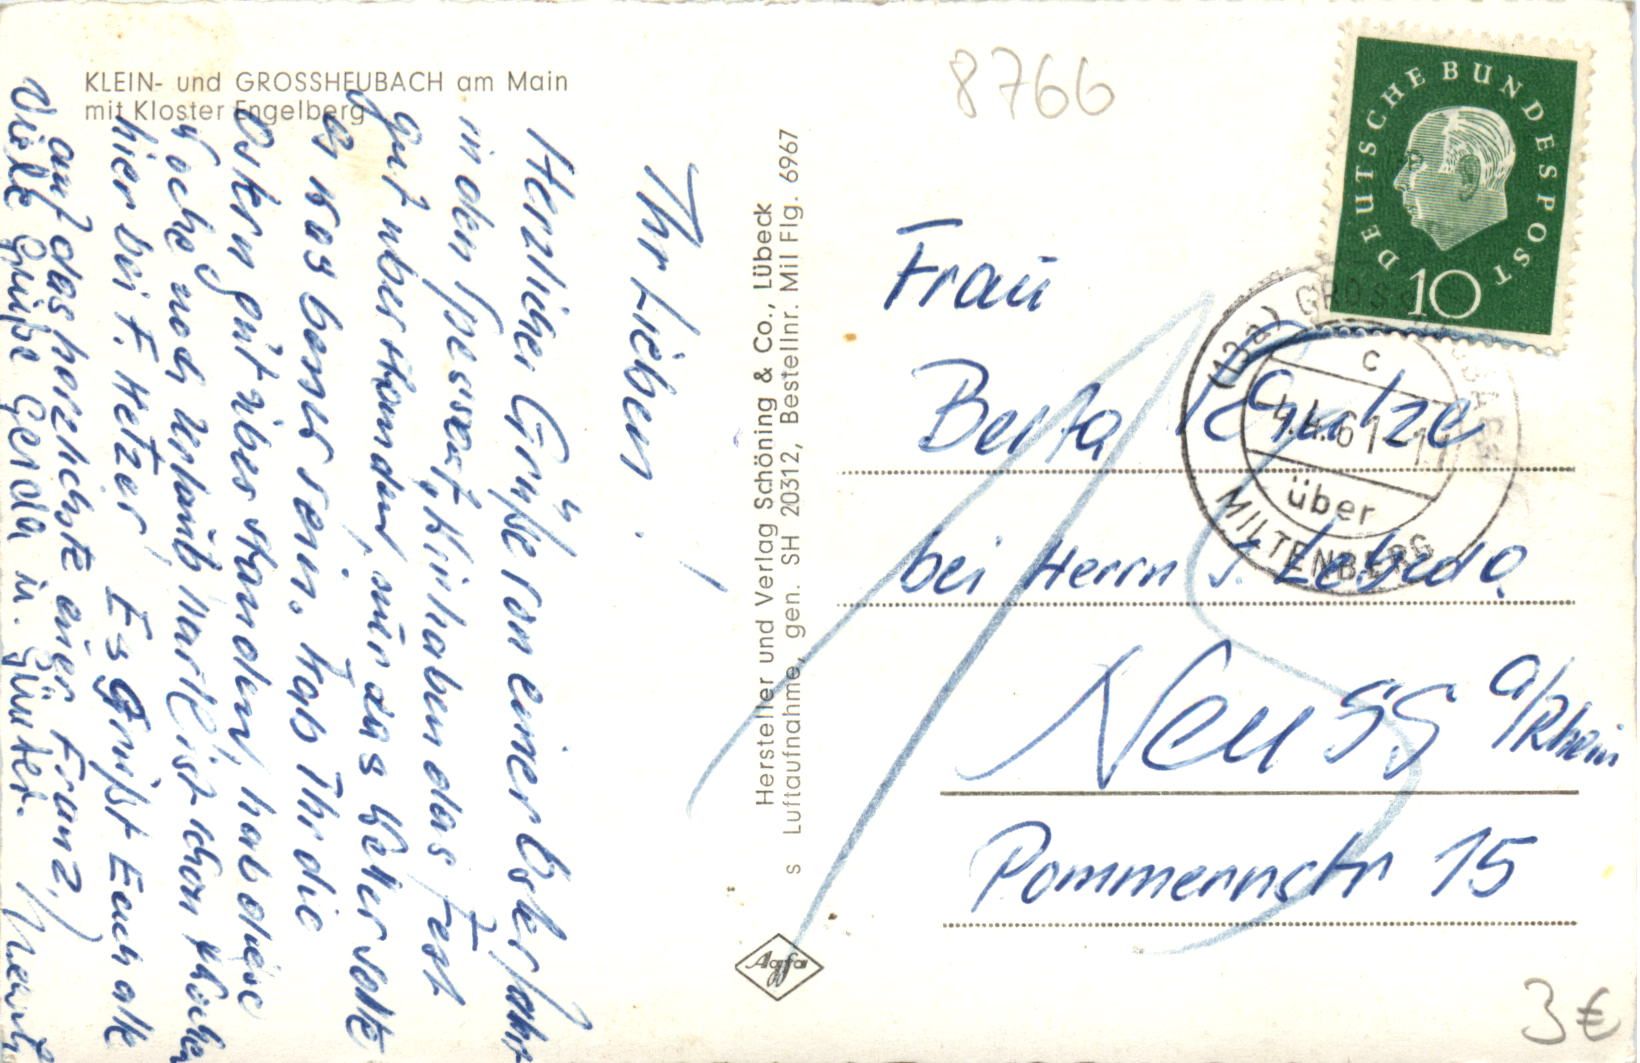 KLEIN- und GROSSHEUBACH am Main
mit Kloster Engelberg
8766
DEUTSCHE BUNDESPOST
10
(13a) GROSSHEUBACH
c
4.4.61-11
über
MILTENBERG
Ihr Lieben!
Herzliche Grüße von einer Osterfahrt
in den Spessart, Wir haben das Fest
gut überstanden, nur das Wetter sollte
es was besser sein. Habt Ihr die
Ostern gut überstanden, hab diese
Woche noch Urlaub
hier bei F. Hetzer, Es Grüßt Euch alle
auf das herzlichste euer Franz,
Viele Grüße Gerda u. Günter.
Hersteller und Verlag Schöning & Co., Lübeck
s Luftaufnahme, gen. SH 20312, Bestellnr. Mil Flg. 6967
Agfa
Frau
Berta Schulze
bei Herrn
Neuss a/Rhein
Pommernstr 15
3 €